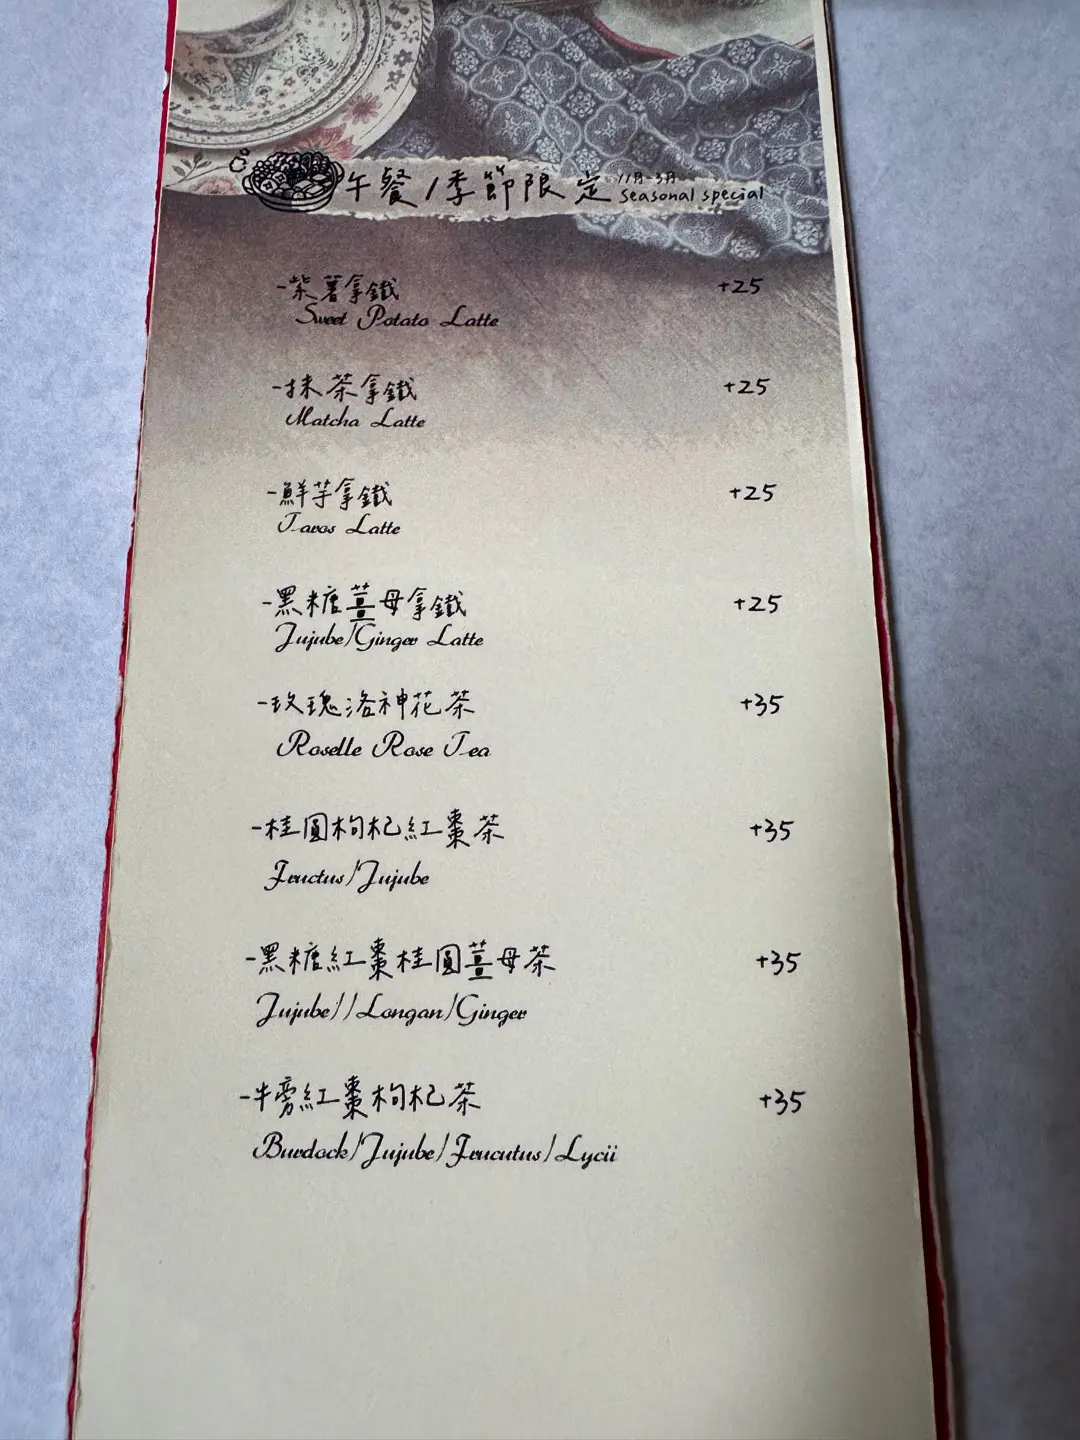 午餐/季節限定 11月-3月
Seasonal special
-紫薯拿鐵 +25
Sweet Potato Latte
-抹茶拿鐵 +25
Matcha Latte
-鮮芋拿鐵 +25
Taros Latte
-黑糖薑母拿鐵 +25
Jujube/Ginger Latte
-玫瑰洛神花茶 +35
Roselle Rose Tea
-桂圓枸杞紅棗茶 +35
Fructus/Jujube
-黑糖紅棗桂圓薑母茶 +35
Jujube//Longan/Ginger
-牛旁紅棗枸杞茶 +35
Burdock/Jujube/Frucutus/Lycii